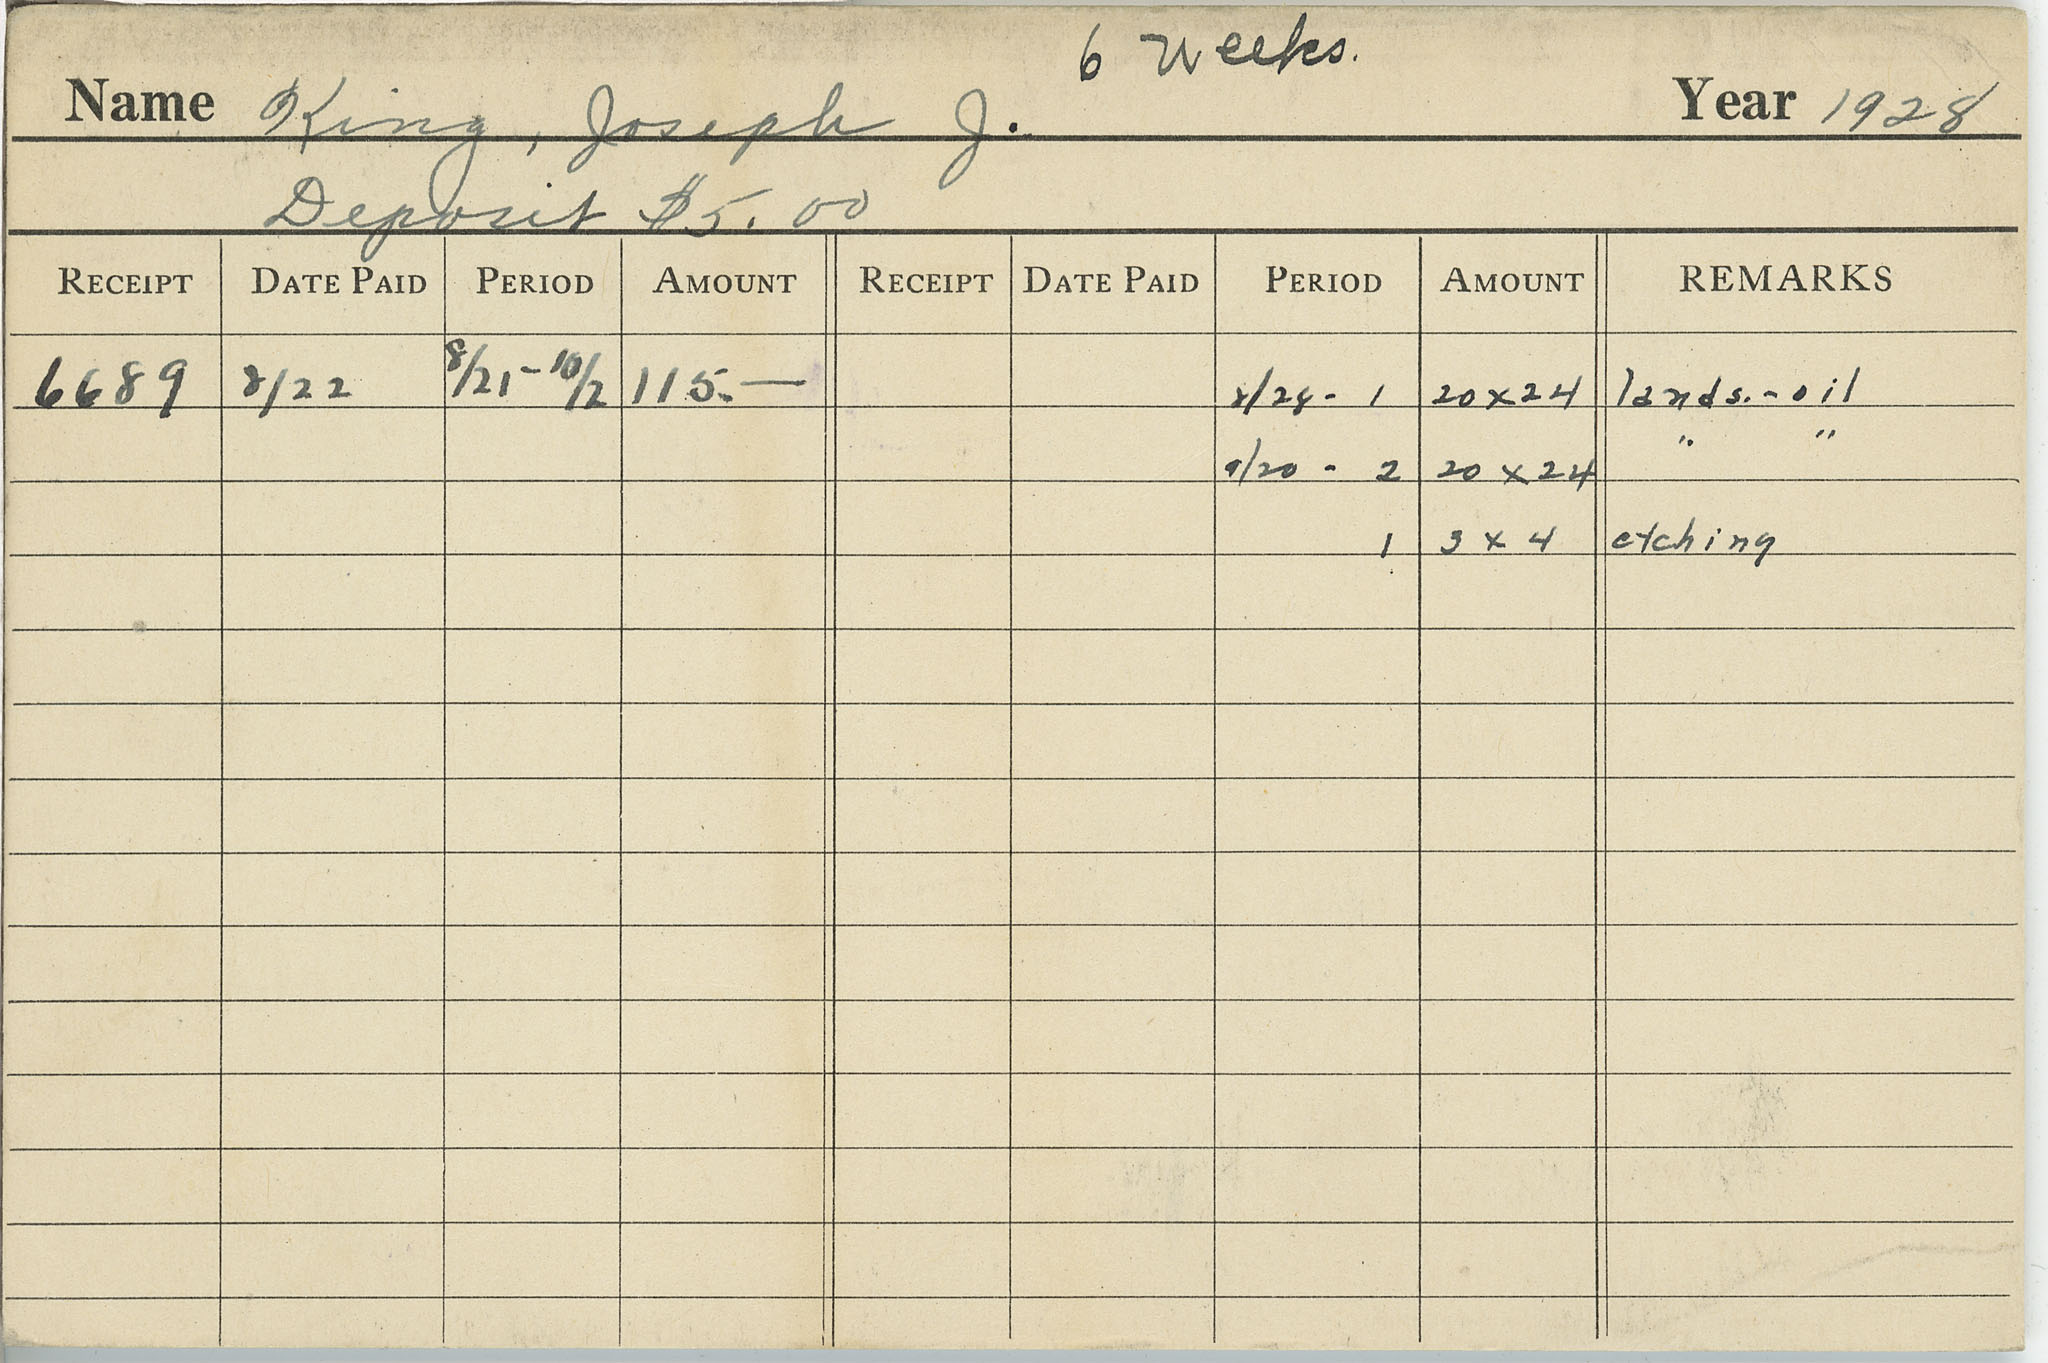 6 Weeks.
Name King, Joseph J. Year 1928
Deposit $5.00
RECEIPT DATE PAID PERIOD AMOUNT RECEIPT DATE PAID PERIOD AMOUNT REMARKS
6689 8/22 8/21-10/2 115.— 8/28- 1 20x24 lands.-oil
9/20 - 2 20 x 24 " "
1 3 x 4 etching